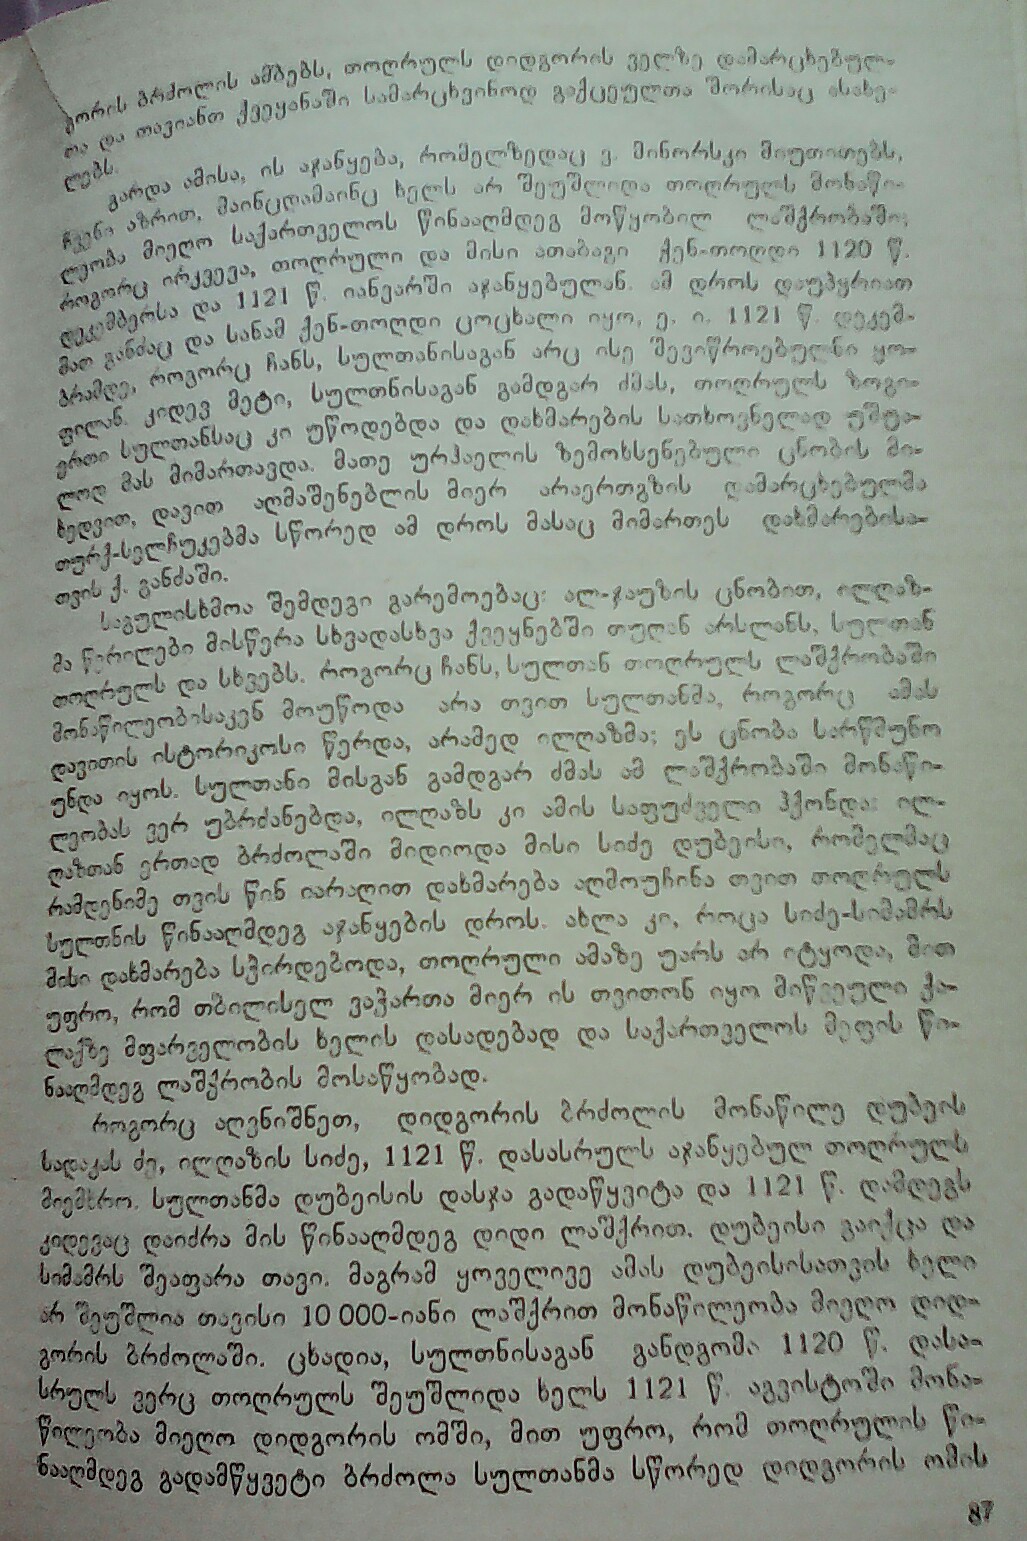 გორის ბრძოლის ამბებს, თოღრულს დიდგორის ველზე დამარცხებულ-
თა და თავიანთ ქვეყანაში სამარცხვინოდ გაქცეულთა შორისაც ასახე-
ლებს.
გარდა ამისა, ის აჯანყება, რომელზედაც ვ. მინორსკი მიუთითებს,
ჩვენი აზრით, მაინცდამაინც ხელს არ შეუშლიდა თოღრულს მონაწი-
ლეობა მიეღო საქართველოს წინააღმდეგ მოწყობილ ლაშქრობაში;
როგორც ირკვევა, თოღრული და მისი ათაბაგი ქენ-თოღდი 1120 წ.
დეკემბერსა და 1121 წ. იანვარში აჯანყებულან. ამ დროს დაუპყრიათ
მათ განძაც და სანამ ქენ-თოღდი ცოცხალი იყო, ე. ი. 1121 წ. დეკემ-
ბრამდე, როგორც ჩანს, სულთანისაგან არც ისე შევიწროებულნი ყო-
ფილან. კიდევ მეტი, სულთნისაგან გამდგარ ძმას, თოღრულს ზოგი-
ერთი სულთანსაც კი უწოდებდა და დახმარების სათხოვნელად უშუა-
ლოდ მას მიმართავდა. მათე ურჰაელის ზემოხსენებული ცნობის მი-
ხედვით, დავით აღმაშენებლის მიერ არაერთგზის დამარცხებულმა
თურქ-სელჩუკებმა სწორედ ამ დროს მასაც მიმართეს დახმარებისა-
თვის ქ. განძაში.
საგულისხმოა შემდეგი გარემოებაც: ალ-ჯაუზის ცნობით, ილღაზ-
მა წერილები მისწერა სხვადასხვა ქვეყნებში თუღან არსლანს, სულთან
თოღრულს და სხვებს. როგორც ჩანს, სულთან თოღრულს ლაშქრობაში
მონაწილეობისაკენ მოუწოდა არა თვით სულთანმა, როგორც ამას
დავითის ისტორიკოსი წერდა, არამედ ილღაზმა; ეს ცნობა სარწმუნო
უნდა იყოს. სულთანი მისგან გამდგარ ძმას ამ ლაშქრობაში მონაწი-
ლეობას ვერ უბრძანებდა, ილღაზს კი ამის საფუძველი ჰქონდა: ილ-
ღაზთან ერთად ბრძოლაში მიდიოდა მისი სიძე დუბეისი, რომელმაც
რამდენიმე თვის წინ იარაღით დახმარება აღმოუჩინა თვით თოღრულს
სულთნის წინააღმდეგ აჯანყების დროს. ახლა კი, როცა სიძე-სიმამრს
მისი დახმარება სჭირდებოდა, თოღრული ამაზე უარს არ იტყოდა, მით
უფრო, რომ თბილისელ ვაჭართა მიერ ის თვითონ იყო მიწვეული ქა-
ლაქზე მფარველობის ხელის დასადებად და საქართველოს მეფის წი-
ნააღმდეგ ლაშქრობის მოსაწყობად.
როგორც აღვნიშნეთ, დიდგორის ბრძოლის მონაწილე დუბეის
სადაკას ძე, ილღაზის სიძე, 1121 წ. დასასრულს აჯანყებულ თოღრულს
მიემხრო. სულთანმა დუბეისის დასჯა გადაწყვიტა და 1121 წ. დამდეგს
კიდევაც დაიძრა მის წინააღმდეგ დიდი ლაშქრით. დუბეისი გაიქცა და
სიმამრს შეაფარა თავი. მაგრამ ყოველივე ამას დუბეისისათვის ხელი
არ შეუშლია თავისი 10 000-იანი ლაშქრით მონაწილეობა მიეღო დიდ-
გორის ბრძოლაში. ცხადია, სულთნისაგან განდგომა 1120 წ. დასა-
სრულს ვერც თოღრულს შეუშლიდა ხელს 1121 წ. აგვისტოში მონა-
წილეობა მიეღო დიდგორის ომში, მით უფრო, რომ თოღრულის წი-
ნააღმდეგ გადამწყვეტი ბრძოლა სულთანმა სწორედ დიდგორის ომის
87